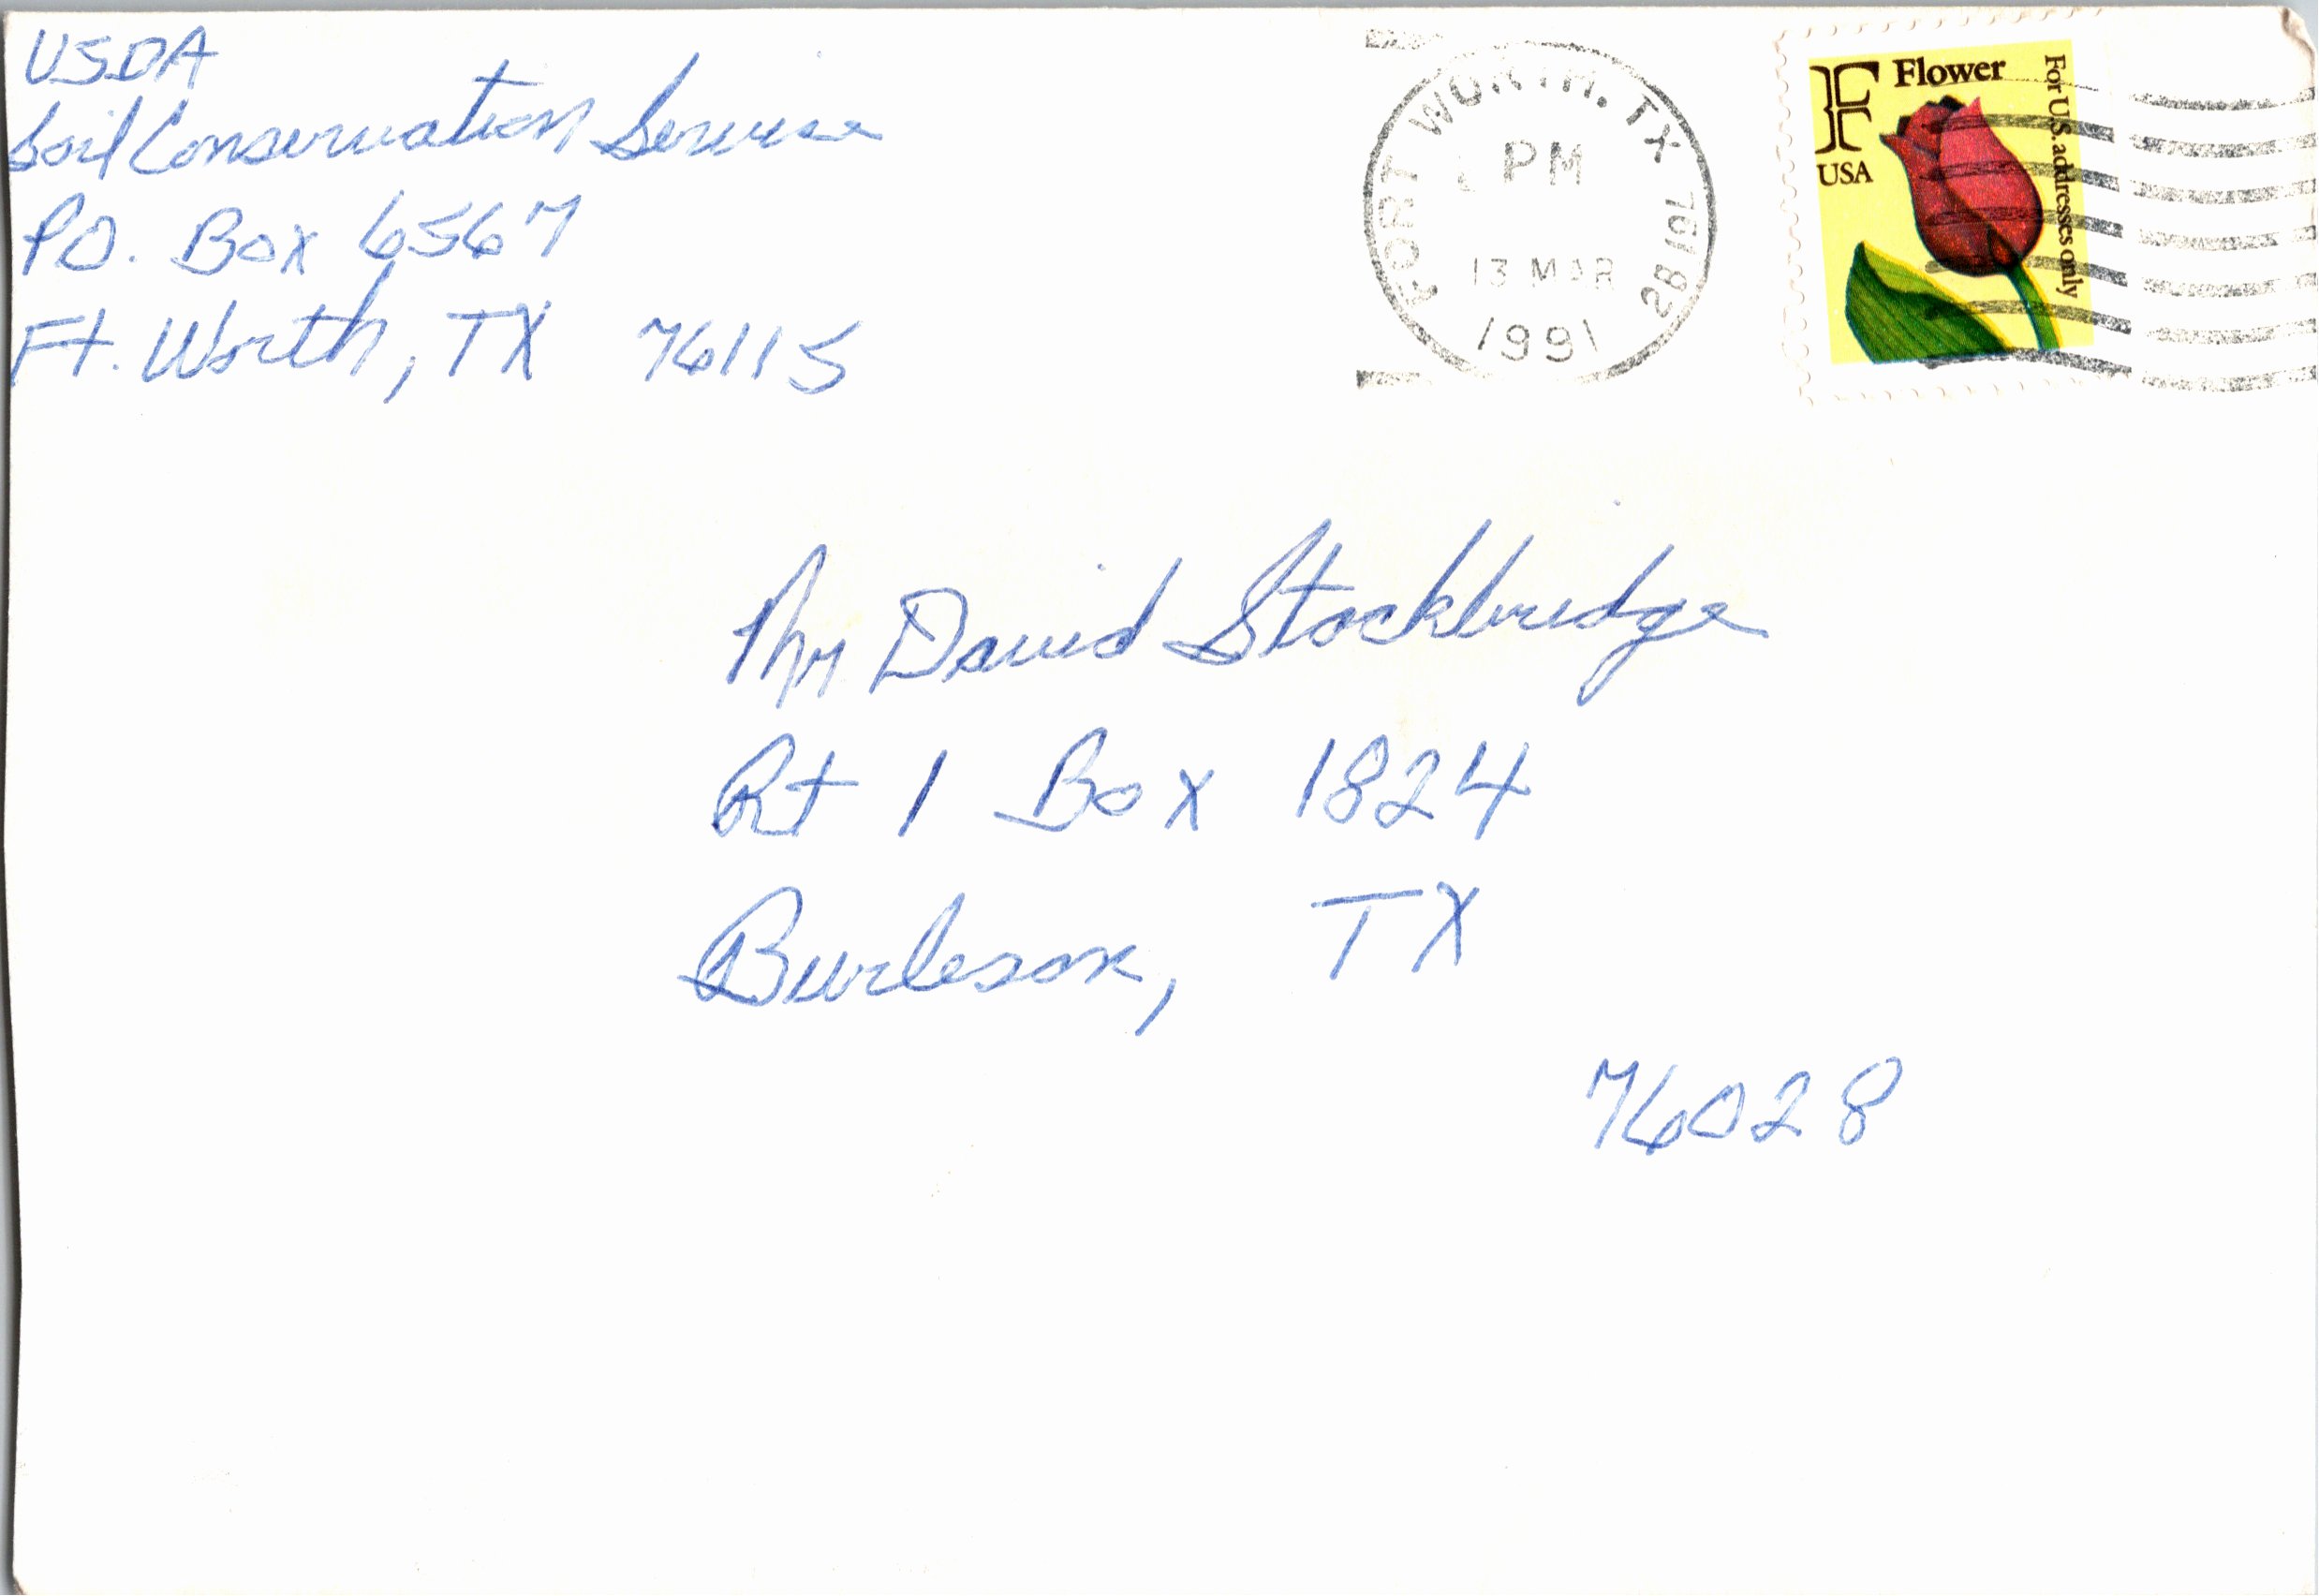 USDA
Soil Conservation Service
P.O. Box 6567
Ft. Worth, TX 76115
FORT WORTH, TX 76182
PM
13 MAR
1991
F Flower
USA
For U.S. addresses only
Mr. David Stockbridge
Rt 1 Box 1824
Burleson, TX
76028